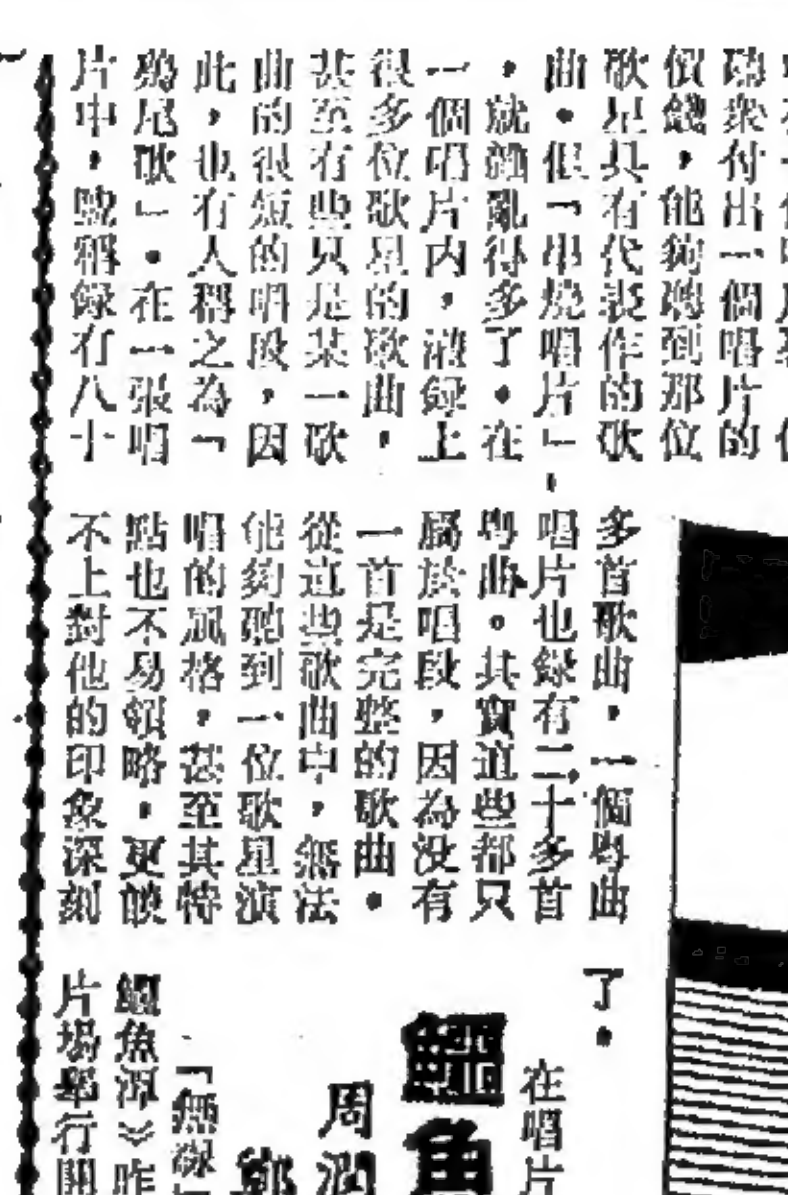 聽衆付出一個唱片的
價錢，能夠聽到那位
歌星具有代表作的歌
曲。但「串燒唱片」，
，就雜亂得多了。在
一個唱片內，灌錄上
很多位歌星的歌曲，
甚至有些只是某一歌
曲的很短的唱段，因
此，也有人稱之為「
鷄尾歌」。在一張唱
片中，號稱錄有八十
多首歌曲，一個粤曲
唱片也錄有二十多首
粤曲。其實這些都只
屬於唱段，因為没有
一首是完整的歌曲。
從這些歌曲中，無法
能夠聽到一位歌星演
唱的風格，甚至其特
點也不易領略，更談
不上對他的印象深刻
了。
在唱片
鱷魚
周潤
鄭
「無線
鱷魚潭》昨
片場舉行開